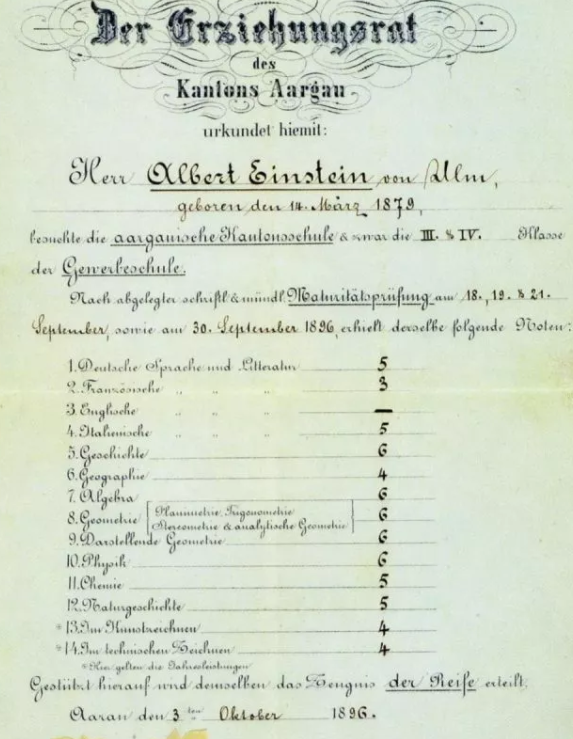 Der Erziehungsrat
des
Kantons Aargau
urkundet hiemit:
Herr Albert Einstein von Ulm,
geboren den 14. März 1879,
besuchte die aargauische Kantonsschule & zwar die III. & IV. Klasse
der Gewerbeschule.
Nach abgelegter schriftl. & mündl. Maturitätsprüfung am 18., 19. & 21.
September, sowie am 30. September 1896, erhielt derselbe folgende Noten:
1. Deutsche Sprache und Litteratur 5
2. Französische " " " 3
3. Englische " " " —
4. Italienische " " " 5
5. Geschichte 6
6. Geographie 4
7. Algebra 6
8. Geometrie [Planimetrie, Trigonometrie 6
Stereometrie & analytische Geometrie]
9. Darstellende Geometrie 6
10. Physik 6
11. Chemie 5
12. Naturgeschichte 5
*13. Im Kunstzeichnen 4
*14. Im technischen Zeichnen 4
*Hier gelten die Jahresleistungen
Gestützt hierauf wird demselben das Zeugnis der Reife erteilt.
Aarau den 3ten Oktober 1896.